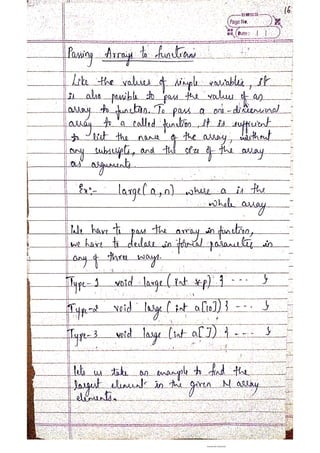 16
Page No.
Date: / /
Passing Arrays to function
Like the values of simple variables, it
is also possible to pass the values of an
array to function. To pass a one-dimensional
array to a called function, it is sufficient
to list the name of the array, without
any subscripts, and the size of the array
as arguments.
Ex:- large(a,n) where a is the
whole array
We have to pass the array in function,
we have to declare in formal parameter in
any of three ways.
Type-1 void large (int *p) { --- }
Type-2 void large (int a[10]) { --- }
Type-3 void large (int a[]) { --- }
lets us take an example to find the
largest element in the given N array
elements.